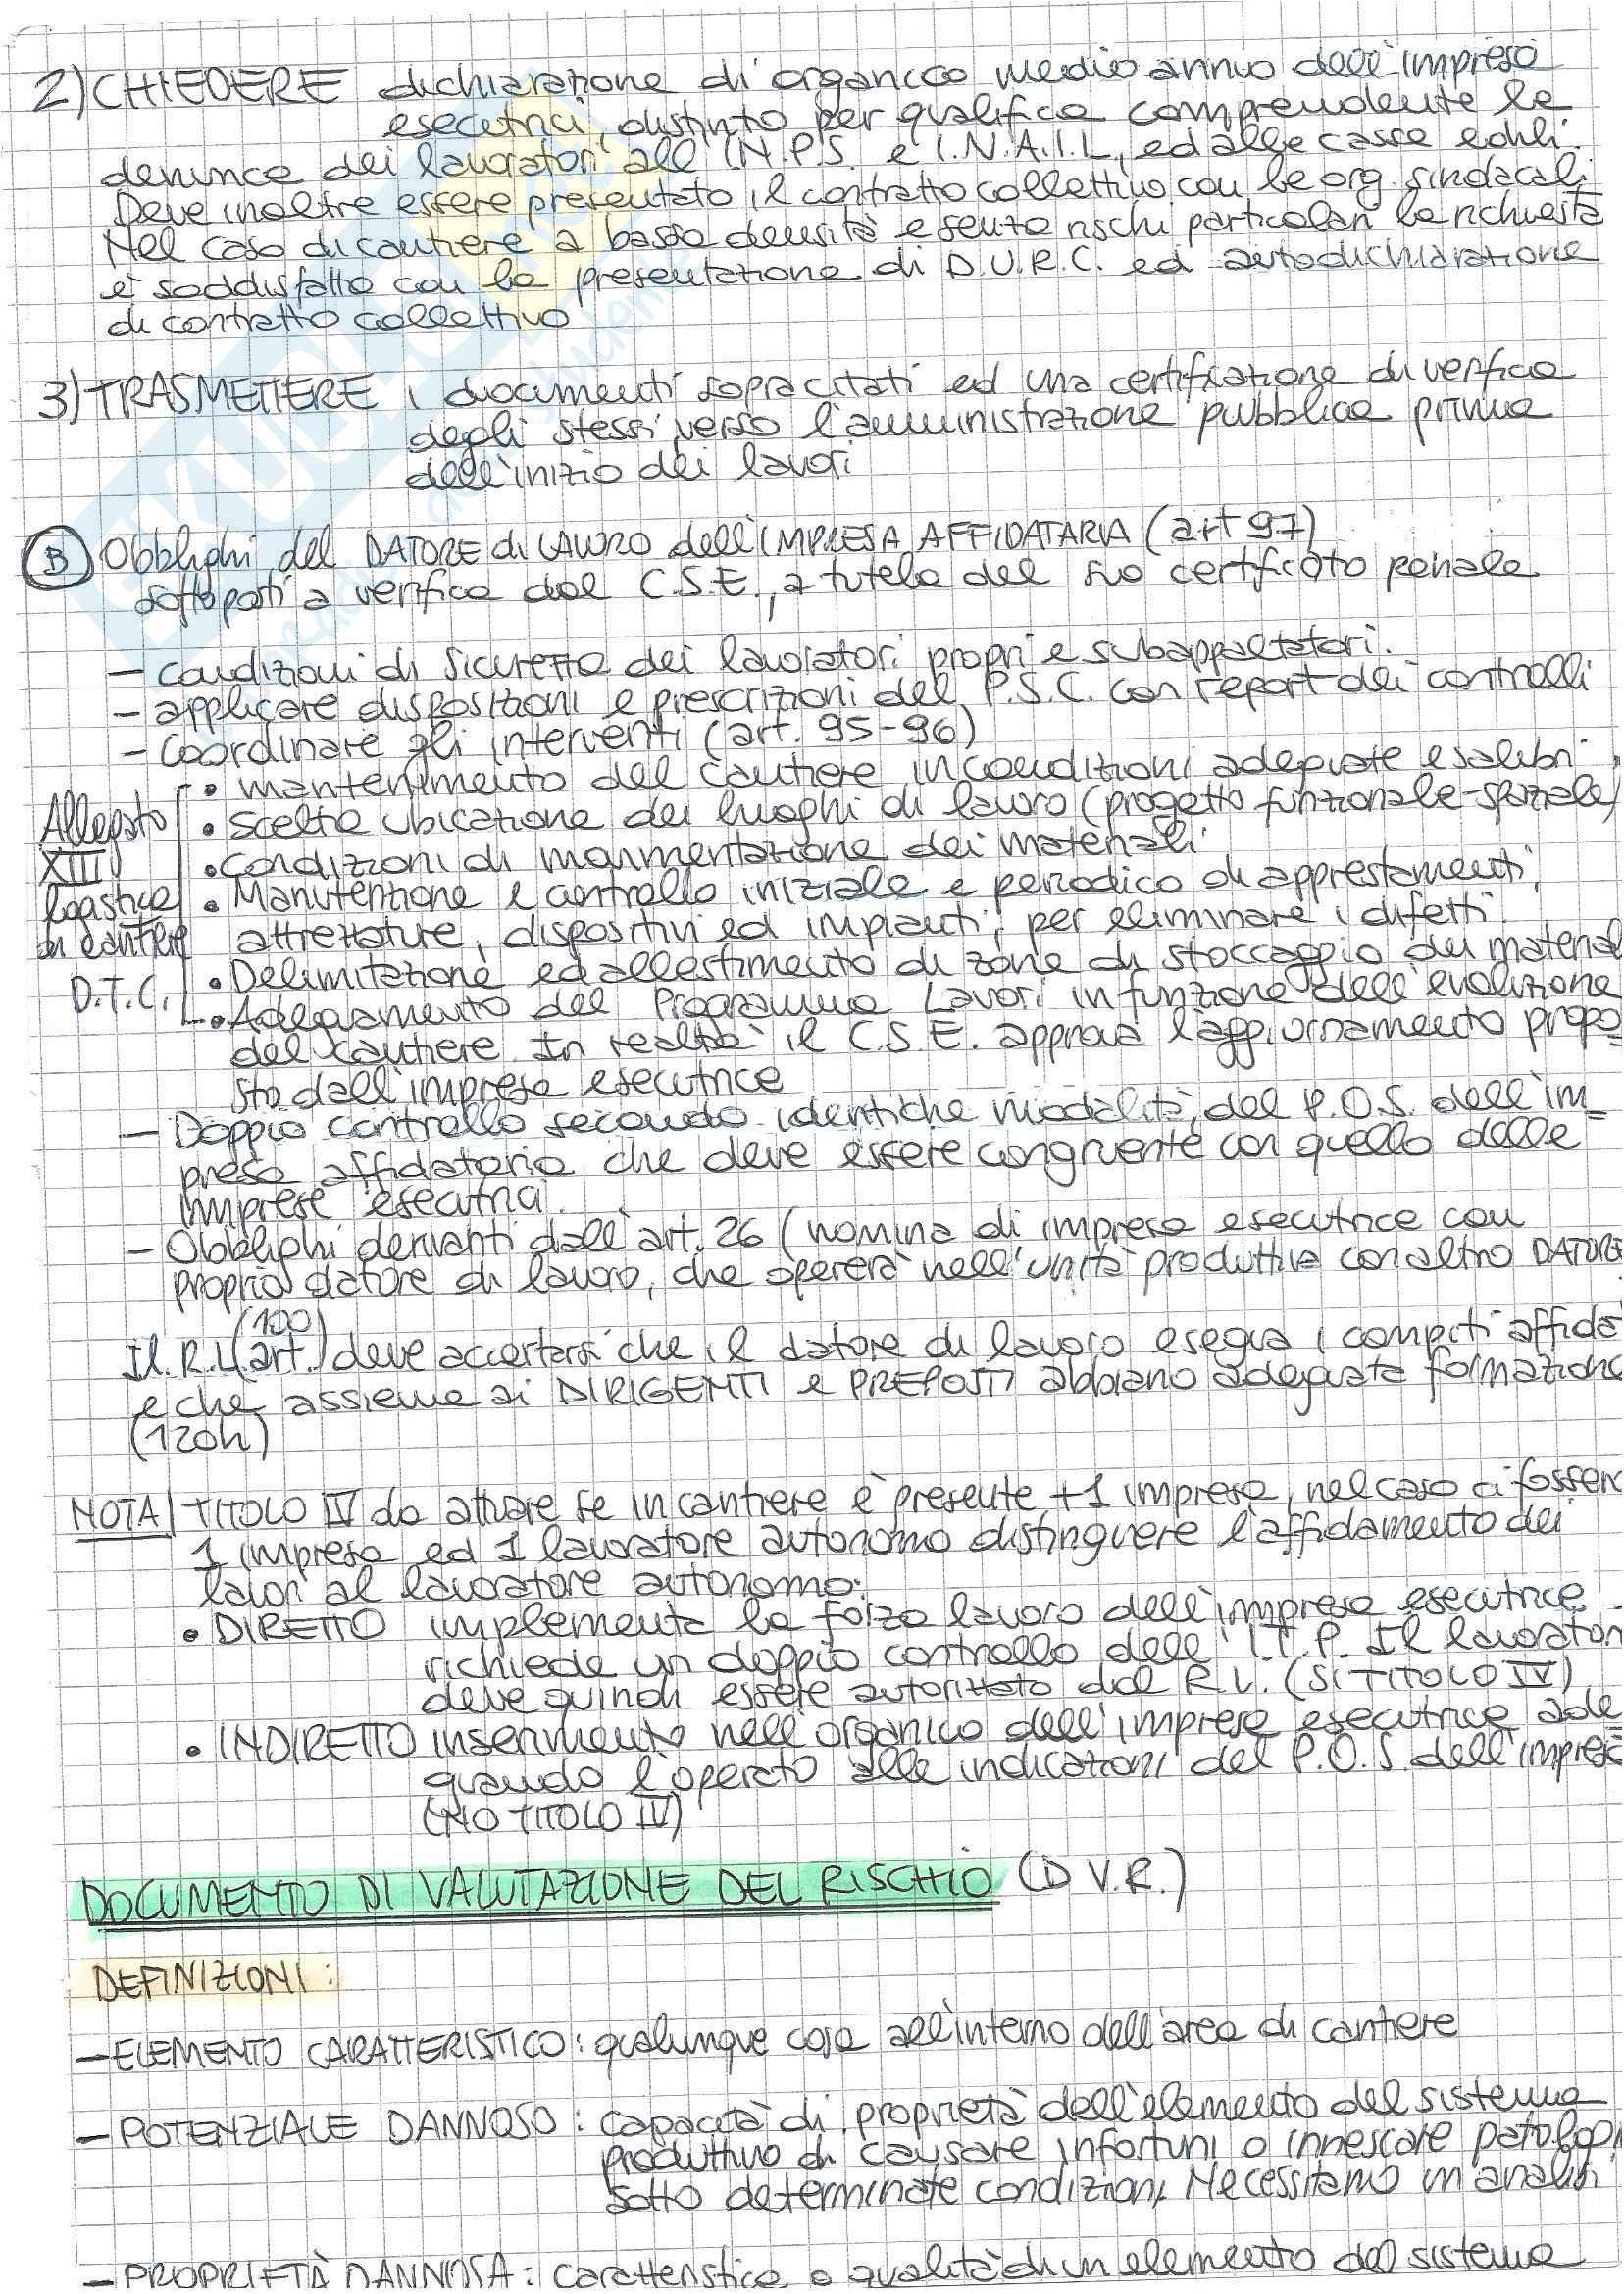 2) CHIEDERE dichiarazione di organico medio annuo dell'impresa
esecutrici, distinto per qualifica comprendente le
denunce dei lavoratori all'I.N.P.S. e I.N.A.I.L, ed alle casse edili.
Deve inoltre essere presentato il contratto collettivo con le org. sindacali
Nel caso di cantiere a bassa densità e senza rischi particolari la richiesta
è soddisfatta con la presentazione di D.U.R.C. ed autodichiarazione
di contratto collettivo
3) TRASMETTERE i documenti sopracitati ed una certificazione di verifica
degli stessi verso l'amministrazione pubblica prima
dell'inizio dei lavori
B) Obblighi del DATORE di LAVORO dell'IMPRESA AFFIDATARIA (art 97)
sottoposti a verifica dal C.S.E., a tutela del suo certificato penale
- condizioni di sicurezza dei lavoratori propri e subappaltatori.
- applicare disposizioni e prescrizioni del P.S.C. con report dei controlli
- Coordinare gli interventi (art. 95-96)
• mantenimento del cantiere in condizioni adeguate e salubri
Allegato • scelta ubicazione dei luoghi di lavoro (progetto funzionale-spaziale)
XIII • condizioni di movimentazione dei materiali
logistica • Manutenzione e controllo iniziale e periodico di apprestamenti,
di cantiere attrezzature, dispositivi ed impianti, per eliminare i difetti.
D.T.C. • Delimitazione ed allestimento di zone di stoccaggio dei material
• Adeguamento del Programma Lavori in funzione dell'evoluzione
del cantiere. In realtà il C.S.E. approva l'aggiornamento propo-
sto dall'impresa esecutrice
- Doppio controllo secondo identiche modalità, del P.O.S. dell'im-
presa affidataria che deve essere congruente con quello delle
imprese esecutrici.
- Obblighi derivanti dall'art. 26 (nomina di impresa esecutrice con
proprio datore di lavoro, che opererà nell'unità produttiva con altro DATORE
(100)
Il R.L. (art.) deve accertarsi che il datore di lavoro esegua i compiti affida
e che assieme ai DIRIGENTI e PREPOSTI abbiano adeguata formazione
(120h)
NOTA/ TITOLO IV da attuare se in cantiere è presente +1 impresa, nel caso ci fossero
1 impresa ed 1 lavoratore autonomo distinguere l'affidamento dei
lavori al lavoratore autonomo:
• DIRETTO implementa la forza lavoro dell'impresa esecutrice
richiede un doppio controllo dell'I.T.P. Il lavorator
deve quindi essere autorizzato dal R.L. (SI TITOLO IV)
• INDIRETTO inserimento nell'organico dell'impresa esecutrice ade
guando l'operato alle indicazioni del P.O.S. dell'impresa
(NO TITOLO IV)
DOCUMENTO DI VALUTAZIONE DEL RISCHIO (D V.R.)
DEFINIZIONI:
- ELEMENTO CARATTERISTICO: qualunque cosa all'interno dell'area di cantiere
- POTENZIALE DANNOSO: capacità di proprietà dell'elemento del sistema
produttivo di causare infortuni o innescare patologi
sotto determinate condizioni. Necessitano in analisi
- PROPRIETÀ DANNOSA: caratteristica o qualità di un elemento del sistema